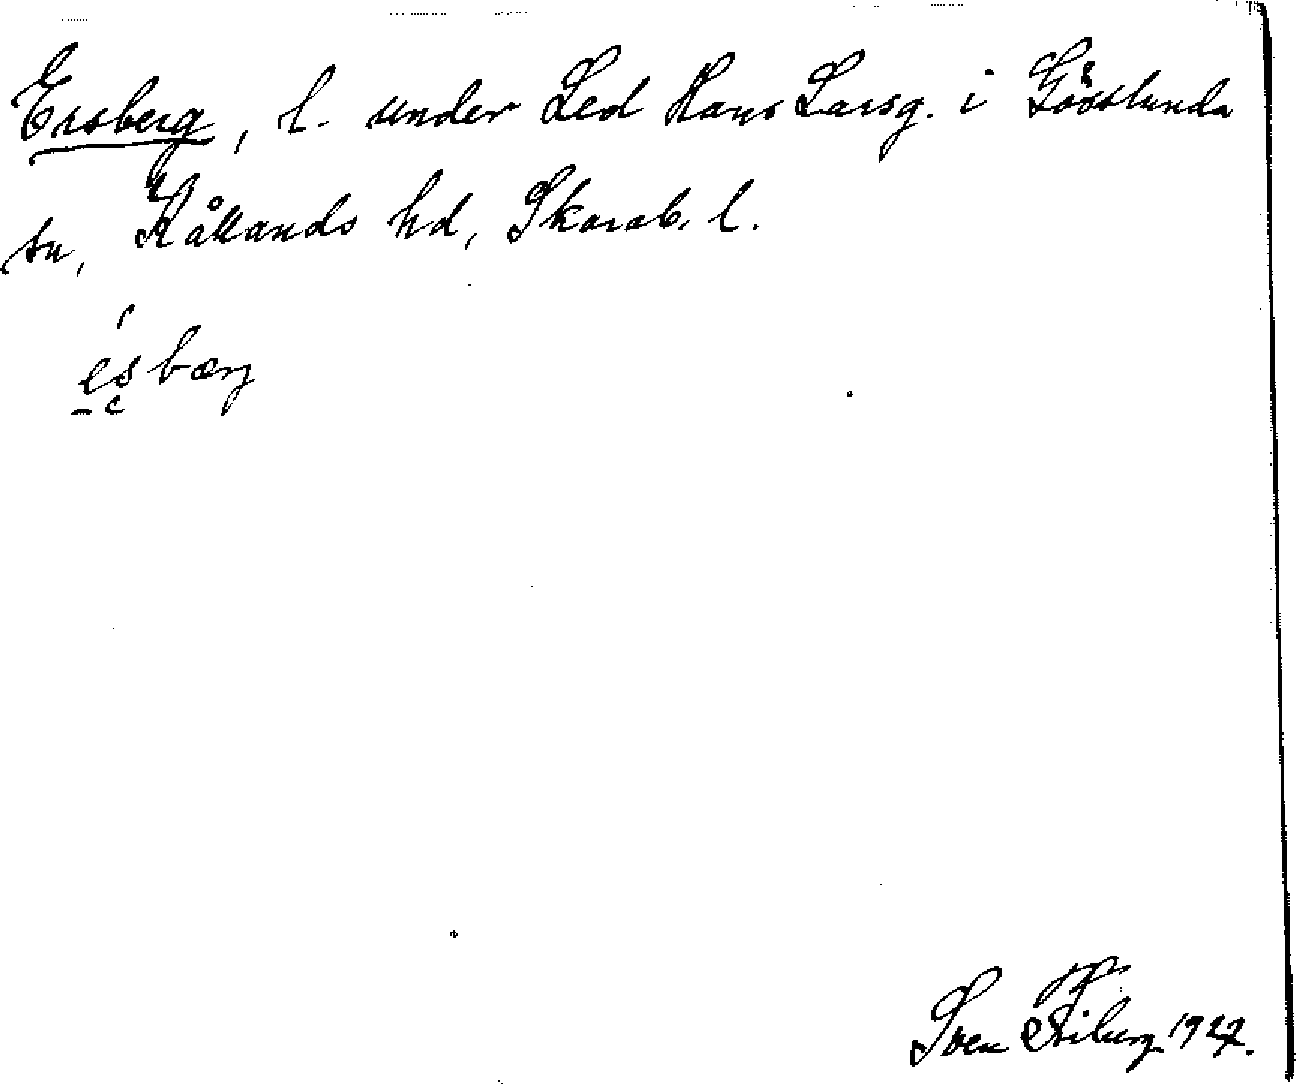 Ersberg, l. under Led Hans Larsg. i Gösslunda
sn, Kållands hd, Skarab. l.
ésbærj
Sven 1927.